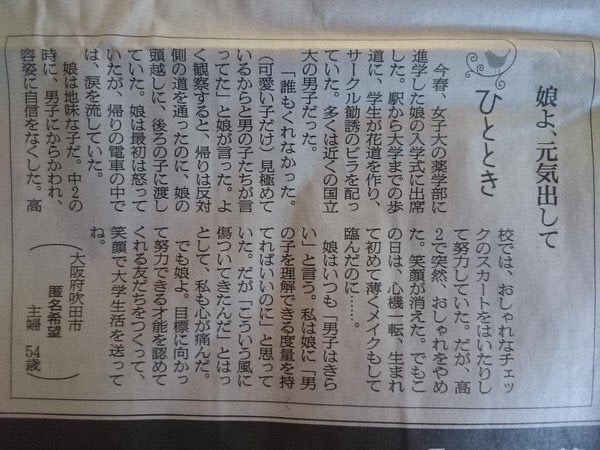 娘よ、元気出して
ひととき
今春、女子大の薬学部に
進学した娘の入学式に出席
した。駅から大学までの歩
道に、学生が花道を作り、
サークル勧誘のビラを配っ
ていた。多くは近くの国立
大の男子だった。
「誰もくれなかった。
（可愛い子だけ）見極めて
いるからと男の子たちが言
ってた」と娘が言った。よ
く観察すると、帰りは反対
側の道を通ったのに、娘の
頭越しに、後ろの子に渡し
ていた。娘は最初は怒って
いたが、帰りの電車の中で
は、涙を流していた。
娘は地味な子だ。中2の
時に、男子にからかわれ、
容姿に自信をなくした。高
校では、おしゃれなチェッ
クのスカートをはいたりし
て努力していた。だが、高
2で突然、おしゃれをやめ
た。笑顔が消えた。でもこ
の日は、心機一転、生まれ
て初めて薄くメイクもして
臨んだのに……。
娘はいつも「男子はきら
い」と言う。私は娘に「男
の子を理解できる度量を持
てればいいのに」と思って
いた。だが「こういう風に
傷ついてきたんだ」とはっ
として、私も心が痛んだ。
でも娘よ。目標に向かっ
て努力できる才能を認めて
くれる友だちをつくって、
笑顔で大学生活を送って
ね。
（大阪府吹田市
匿名希望
主婦　54歳）